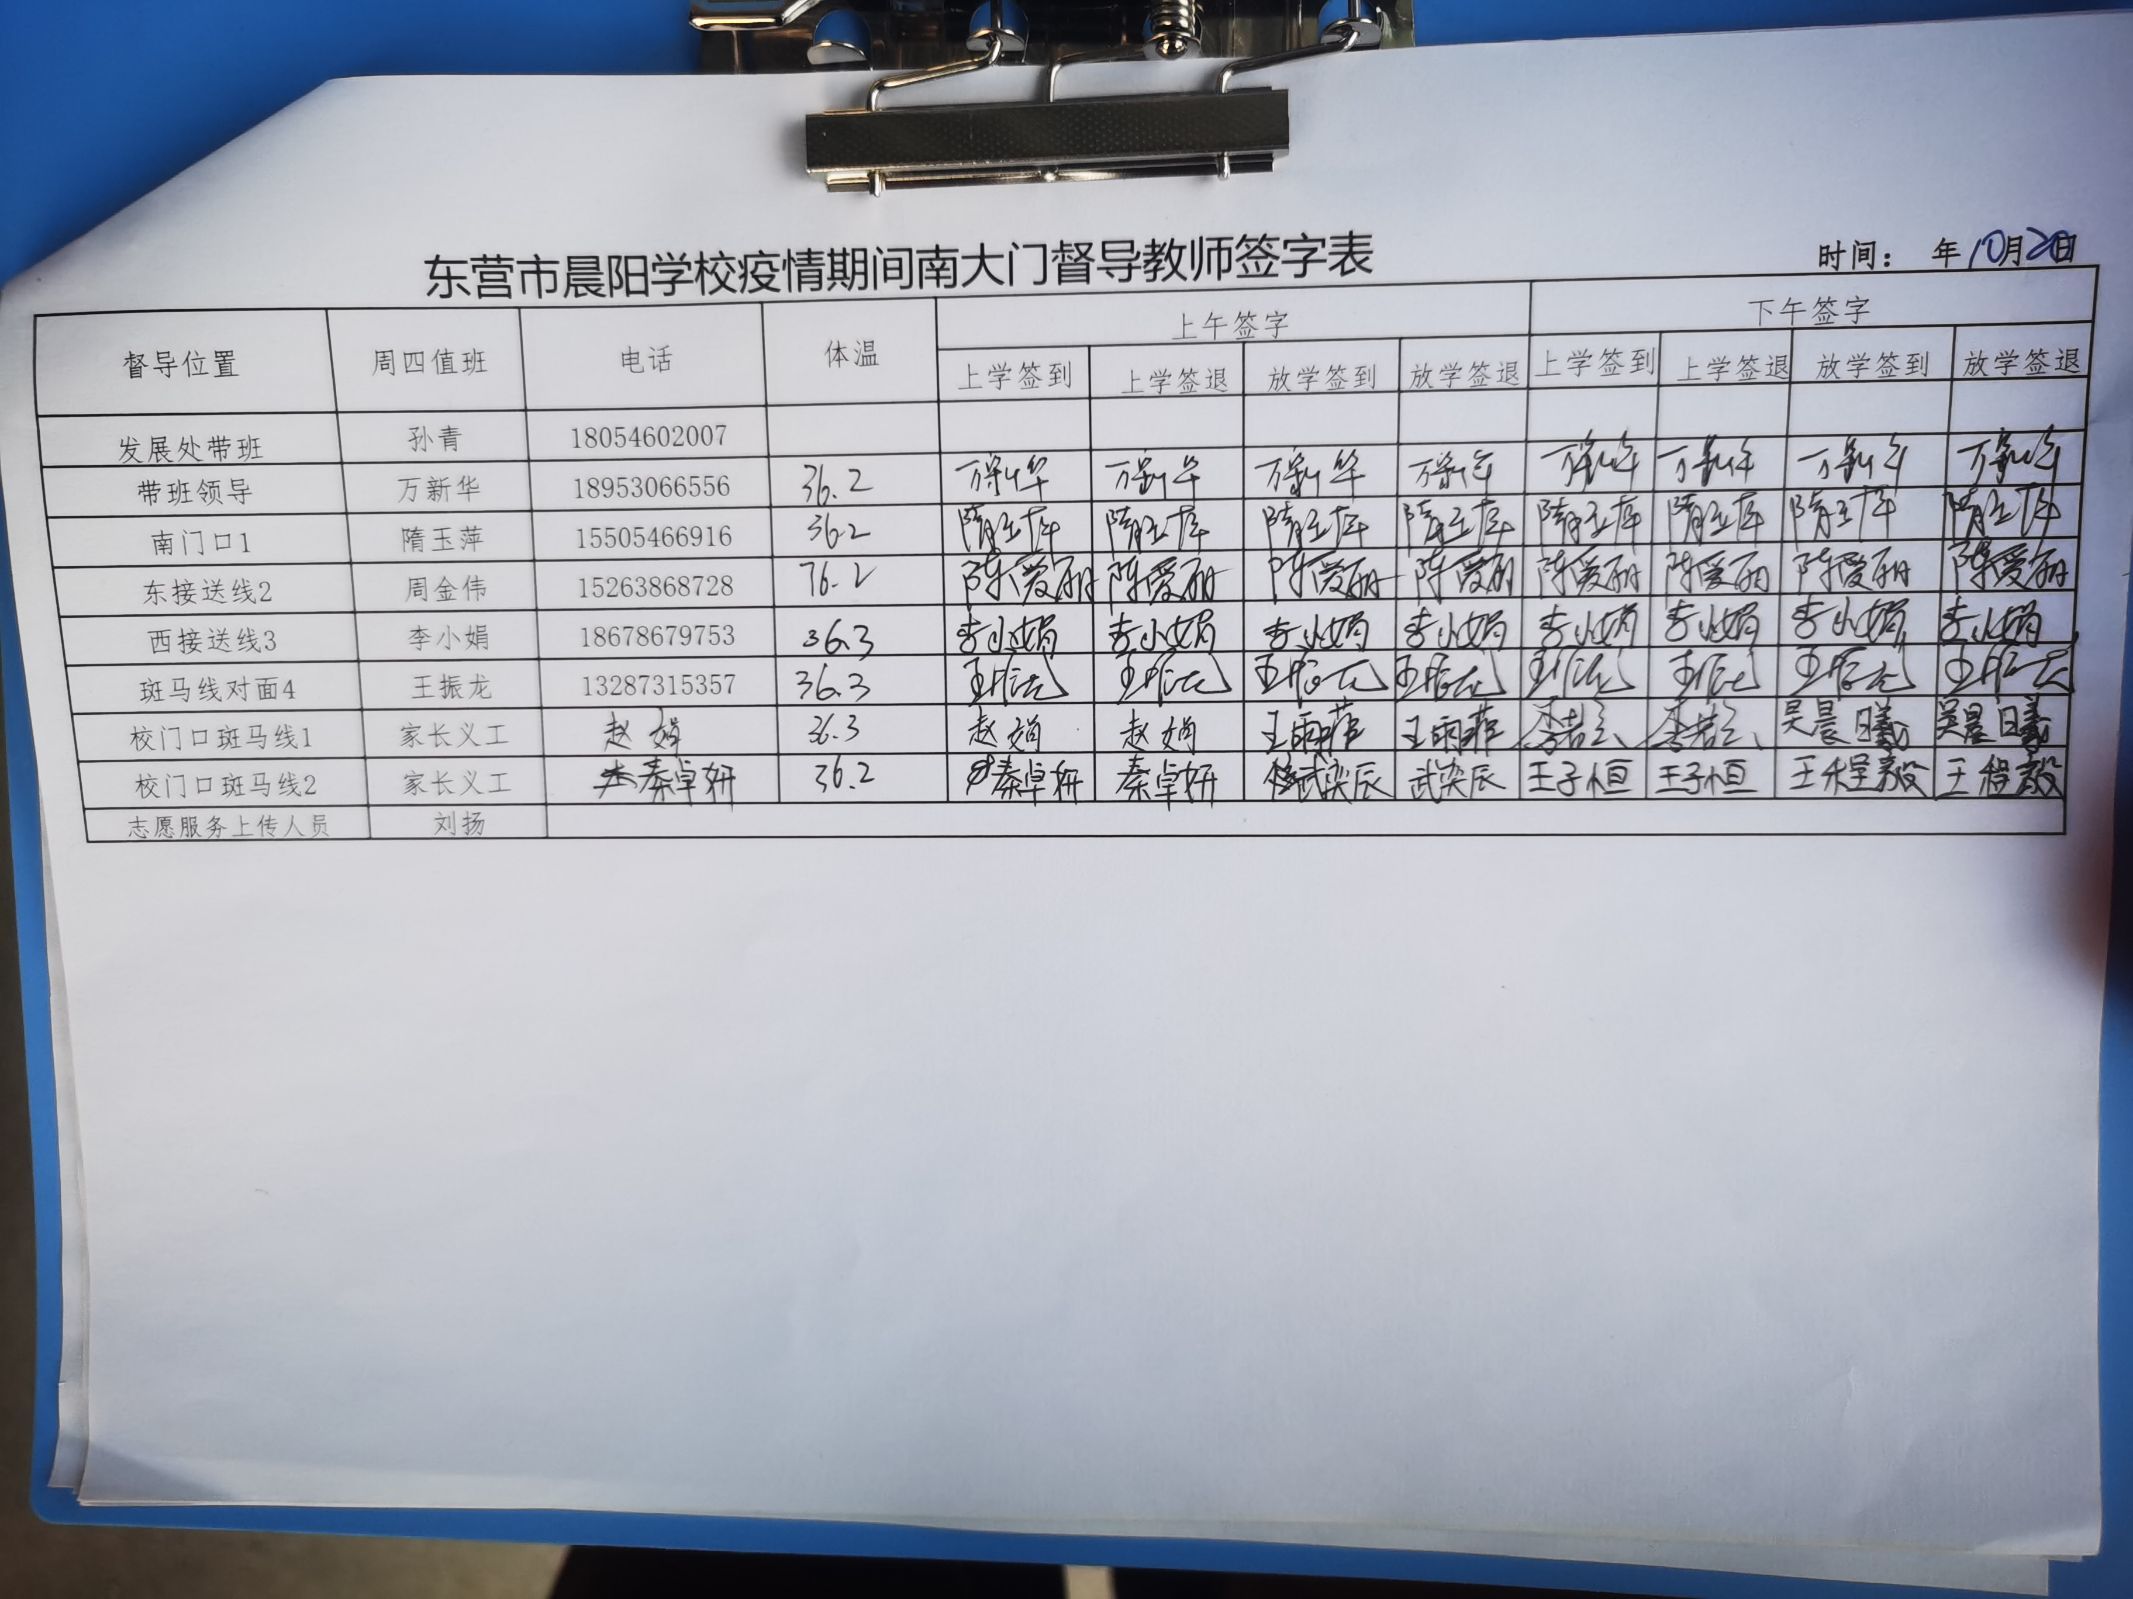 东营市晨阳学校疫情期间南大门督导教师签字表
时间： 年10月20日
督导位置 周四值班 电话 体温 上午签字 下午签字
上学签到 上学签退 放学签到 放学签退 上学签到 上学签退 放学签到 放学签退
发展处带班 孙青 18054602007
带班领导 万新华 18953066556 36.2 万新华 万新华 万新华 万新华 万新华 万新华 万新华 万新华
南门口1 隋玉萍 15505466916 36.2 隋玉萍 隋玉萍 隋玉萍 隋玉萍 隋玉萍 隋玉萍 隋玉萍 隋玉萍
东接送线2 周金伟 15263868728 36.2 陈爱丽 陈爱丽 陈爱丽 陈爱丽 陈爱丽 陈爱丽 陈爱丽 陈爱丽
西接送线3 李小娟 18678679753 36.3 李小娟 李小娟 李小娟 李小娟 李小娟 李小娟 李小娟 李小娟
斑马线对面4 王振龙 13287315357 36.3 王振龙 王振龙 王振龙 王振龙 王振龙 王振龙 王振龙 王振龙
校门口斑马线1 家长义工 赵娟 36.3 赵娟 赵娟 王雨菲 王雨菲 吴晨曦 吴晨曦
校门口斑马线2 家长义工 秦卓妍 36.2 秦卓妍 秦卓妍 武奕辰 武奕辰 王子恒 王子恒 王程毅 王程毅
志愿服务上传人员 刘扬